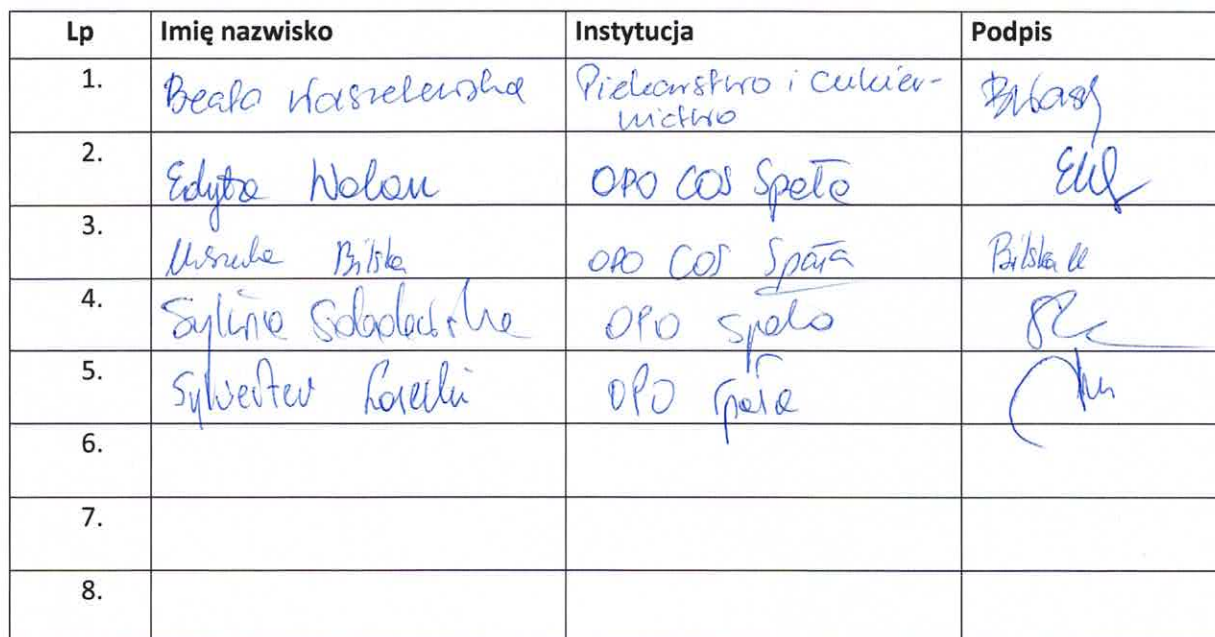 Lp Imię nazwisko Instytucja Podpis
1. Beata Piekarstwo i cukier-
nictwo
2. Edyta Wolan OPO COS Spała
3. Urszula Bilska OPO COS Spała Bilska U
4. Sylwia OPO Spała
5. Sylwester OPO Spała
6.
7.
8.